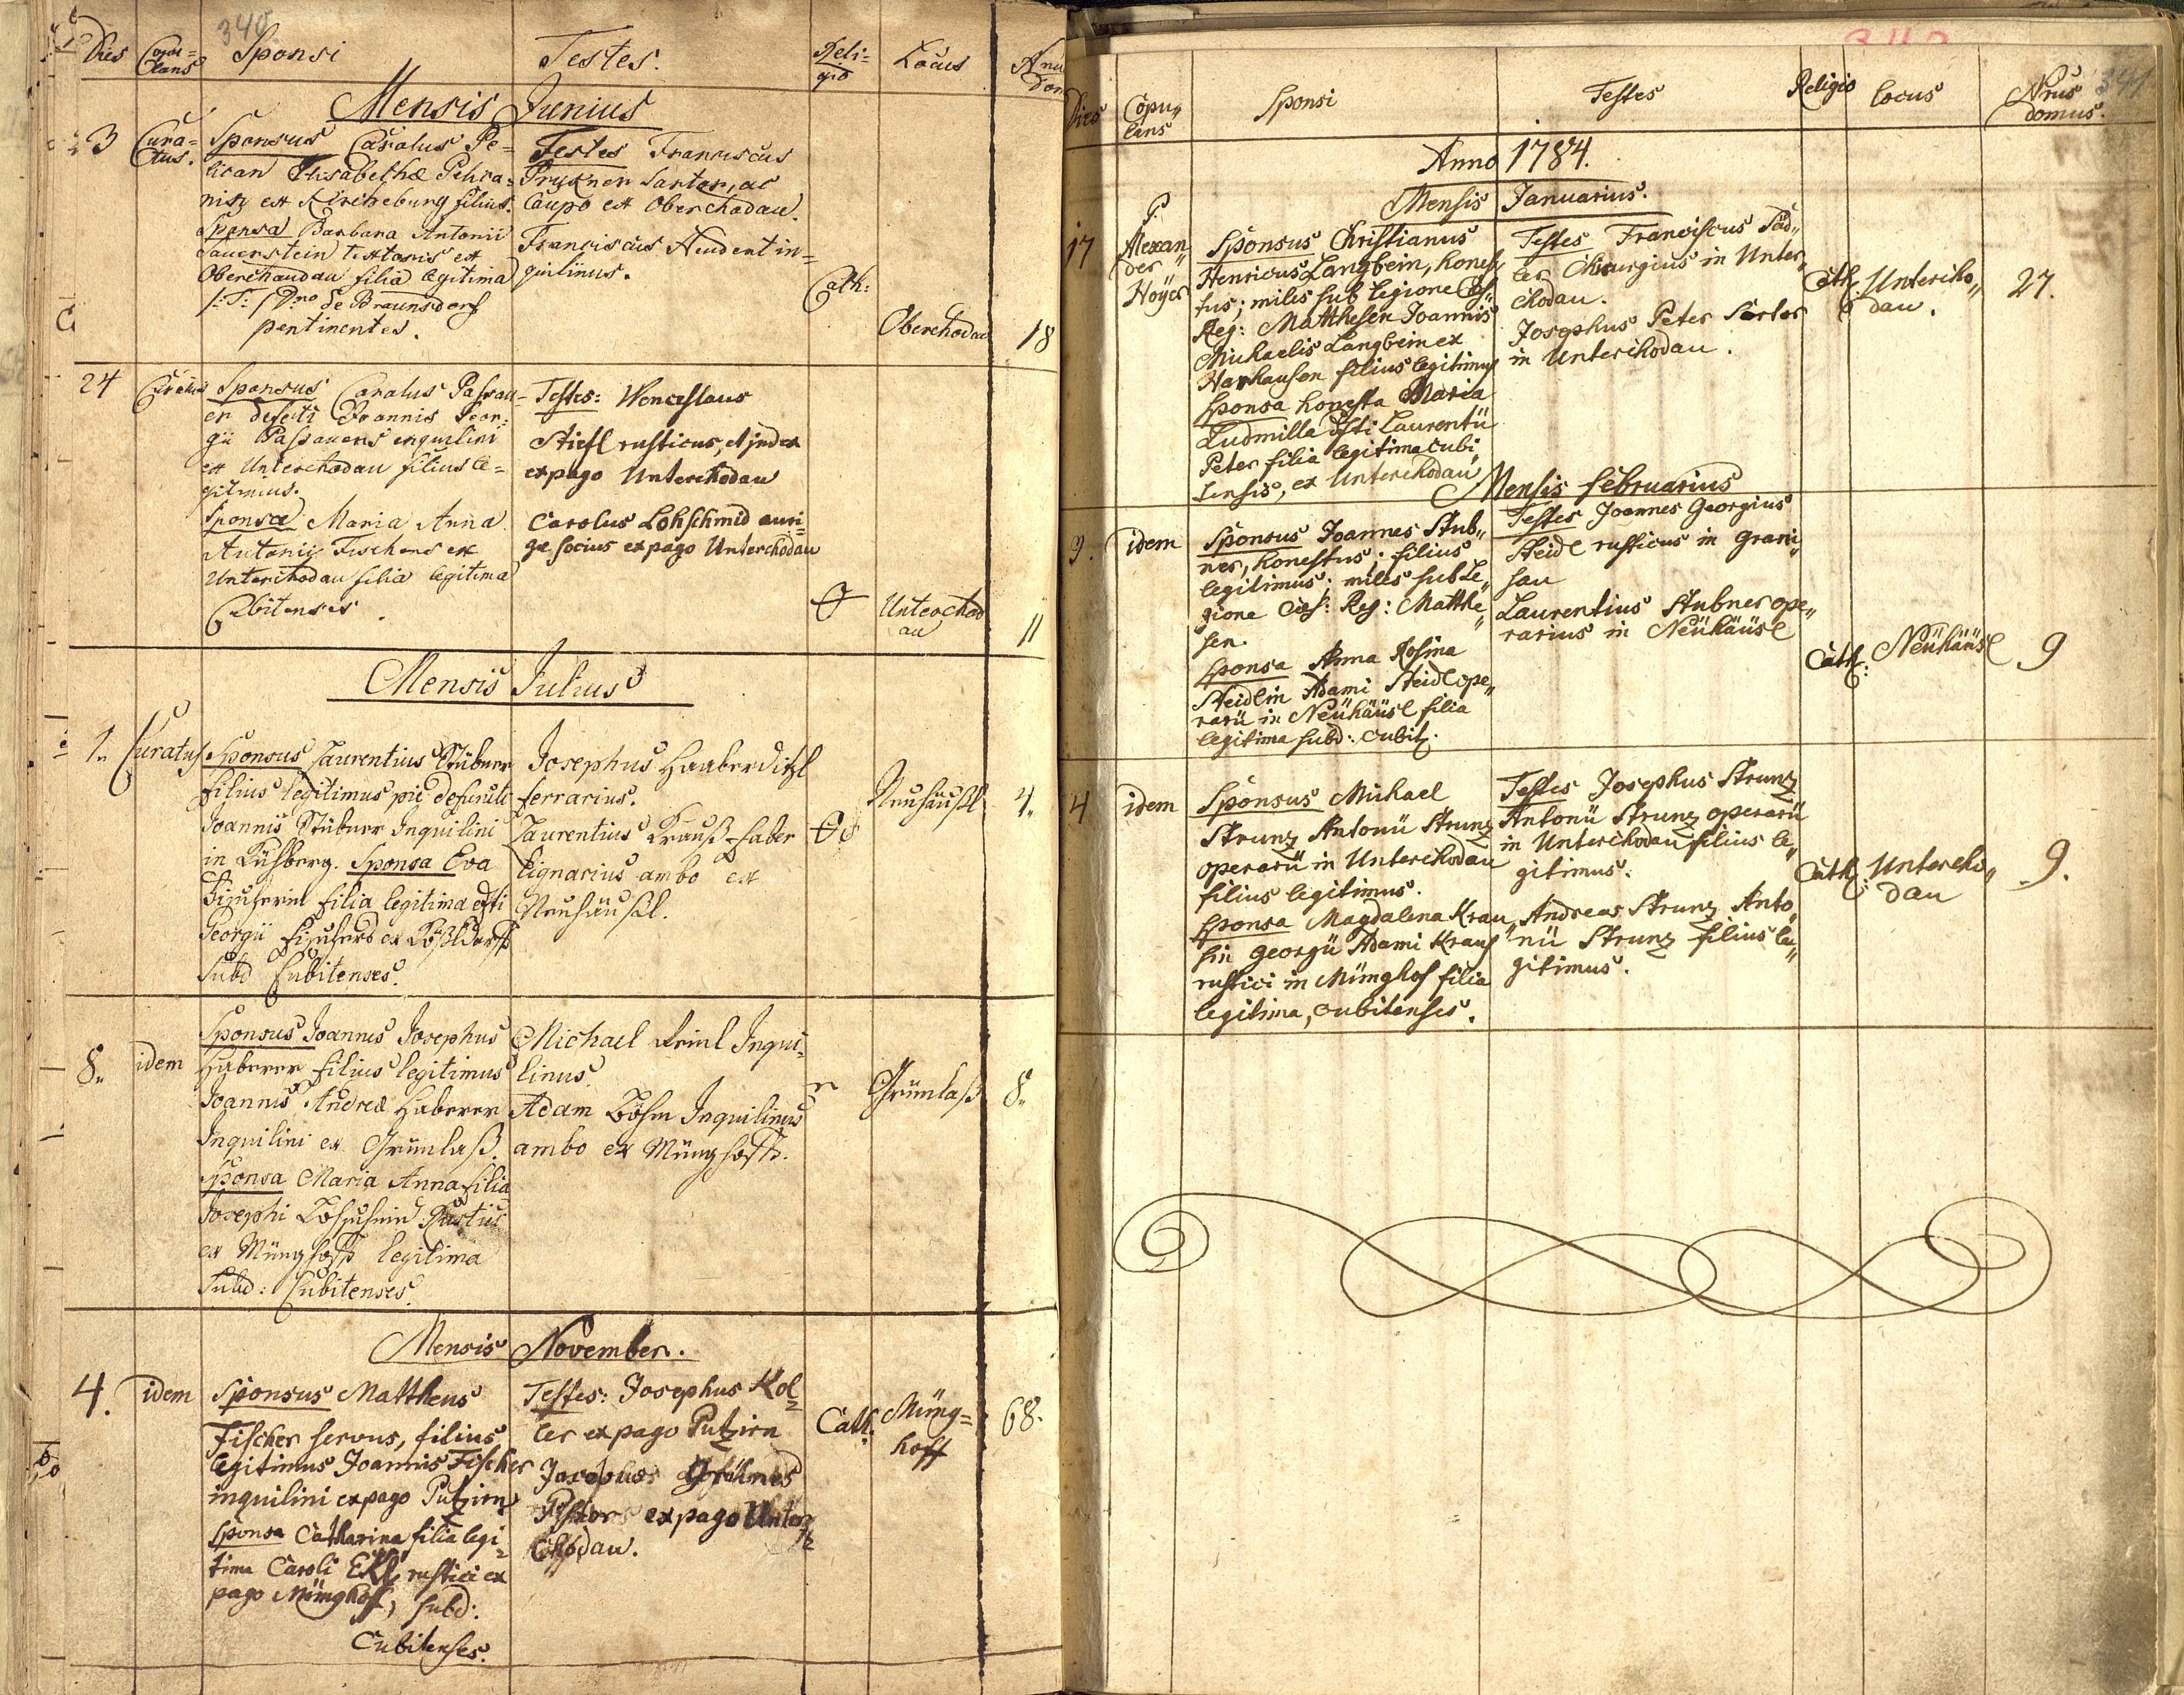 340
Dies
Copu=
lans
Sponsi
Testes.
Reli=
gio
Locus
Mensis Junius
3
Cura=
tus.
Sponsus Carolus Pe=
lican Elisabethæ
ex Kircheburg filius.
Sponsa Barbara Antonii
Sauerstein textoris ex
Oberchaudau filia legitima
/:T: Dno de Braunsdorf
pertinentes.
Testes Franciscus
Prykner Sartor, ac
Caupo ex Oberchodau.
Franciscus Heudent in=
quilinus.
Cath:
Oberchodau
18
24
Curatus
Sponsus Carolus Passau=
er defcti Joannis Geor=
gii Passauers inquilini
ex Unterchodau filius le=
gitimus.
Sponsa Maria Anna
Antonii Fischers ex
Unterchodau filia legitima
Cubitenses.
Testes: Wenceslaus
Stiesl rusticus, et judex
ex pago Unterchodau
Carolus Lohschmid auri=
gæ socius ex pago Unterchodau
Unterchod
au
11
Mensis Julius
1.
Curatus
Sponsus Laurentius Stübner
filius legitimus pie defuncti
Joannis Stübner Inquilini
in Kühberg. Sponsa Eva
filia legitima defti
Georgii
Subd Cubitenses.
Josephus Haberditzl
ferrarius.
Laurentius Krauß faber
lignarius ambo ex
Neuhäußl.
Neuhäußl
4.
8.
idem
Sponsus Joannes Josephus
Haberer filius legitimus
Joannis Andreæ Haberer
Inquilini ex Grünlaß.
Sponsa Maria Anna filia
Josephi Lohschmid
ex Münghoff legitima
Subd: Cubitenses.
Michael Reinl Inqui=
linus.
Adam Böhm Inquilinus
ambo ex Münghoff.
Grünlaß
8.
Mensis November.
4.
idem
Sponsus Mattheus
Fischer servus, filius
legitimus Joannis Fischer
inquilini ex pago Putzirn
Sponsa Catharina filia legi=
tima Caroli Ekl rustici ex
pago Münghoff, subd:
Cubitenses.
Testes: Josephus Kol=
ler ex pago Putzirn
Josephus
Pistor ex pago Unter=
chodau.
Cath:
Müng=
hoff
68.
341
Dies
Copu„
lans
Sponsi
Testes
Religio
locus
Nrus
domus.
Anno 1784.
Mensis Januarius.
17
P.
Alexan„
der
Hoÿer
Sponsus Christianus
Henricus Langbein, hones„
tus; miles sub legione Cæs:
Reg: Matthesen Joannis
Michaelis Langbein ex
Harhausen filius legitimus
Sponsa honesta Maria
Ludmilla dfti Laurentii
Peter filia legitima cubi„
tensis, ex Unterchodau
Testes Franciscus Säd„
ler Chirurgius in Unter„
chodau.
Josephus Peter Sartor
in Unterchodau.
Cath:
Untercho„
dau.
27.
Mensis Februarius
9.
idem
Sponsus Joannes Stub„
ner, honestus; filius
legitimus; miles sub Le„
gione Cæs: Reg: Matthe„
sen.
Sponsa Anna Rosina
Steidlin Adami Steidl ope„
rarii in Neuhäusl filia
legitima subd: cubit:
Testes Joannes Georgius
Steidl rusticus in Grani„
sau
Laurentius Stubner ope„
rarius in Neuhäusl
Cath:
Neuhäusl
9
4
idem
Sponsus Michael
Strunz Antonii Strunz
operarii in Unterchodau
filius legitimus.
Sponsa Magdalena Krau„
sin Georgii Adami Kraus
rustici in Münghof filia
legitima, cubitenses.
Testes Josephus Strunz
Antonii Strunz operarii
in Unterchodau filius le„
gitimus.
Andreas Strunz Anto„
nii Strunz filius le„
gitimus.
Cath:
Untercho„
dau
9.